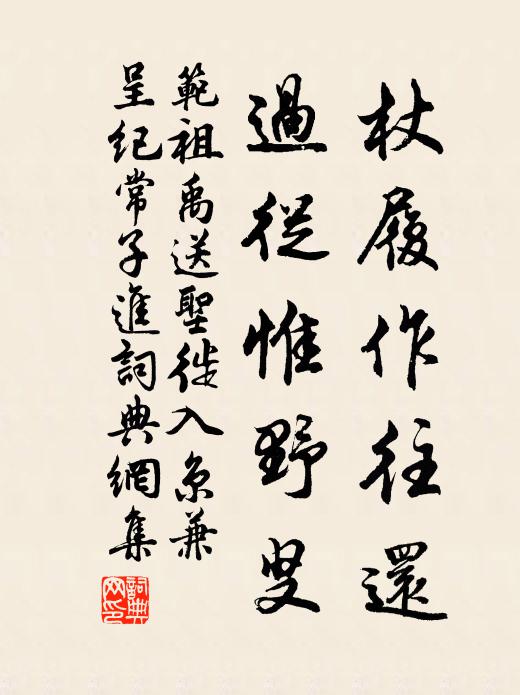 杖履作往還
過從惟野叟
範祖禹送聖徒入京兼
呈纪常子進詞典網集
詞典網印